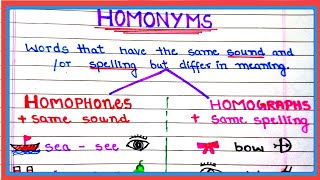 HOMONYMS
Words that have the same sound and
/or spelling but differ in meaning.
HOMOPHONES
+ same sound
HOMOGRAPHS
+ same spelling
sea - see
bow